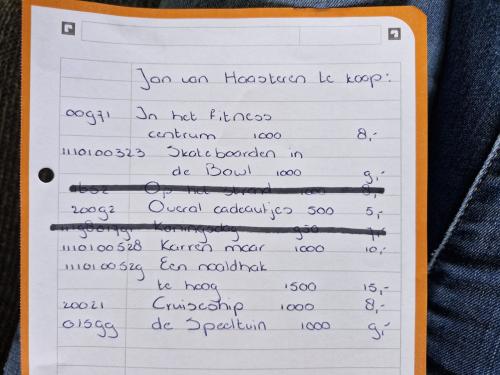 Jan van Haasteren te koop:
00971 In het fitness
centrum 1000 8,-
1110100323 Skateboarden in
de Bowl 1000 9,-
Op het strand 1000
20092 Overal cadeautjes 500 5,-
Koningsdag 950 7,-
1110100528 Karren maar 1000 10,-
1110100529 Een naaldhak
te hoog 1500 15,-
20021 Cruiseship 1000 8,-
01599 de Speeltuin 1000 9,-